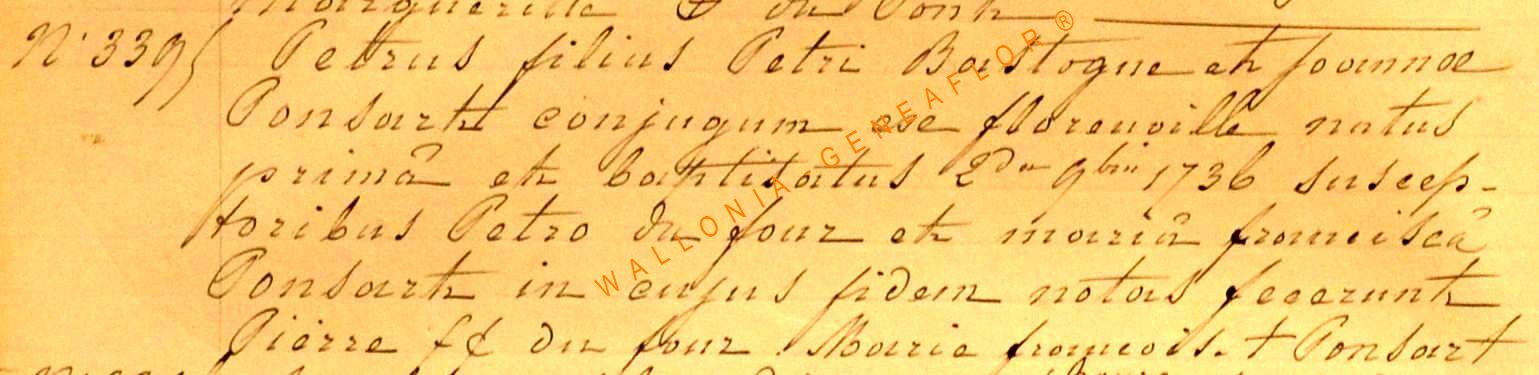 Margueritte du Pont
N° 3395 Petrus filius Petri Bastogne et joannae
Ponsart conjugum ex florenville natus
primâ et baptisatus 2da 9bris 1736 suscep-
toribus Petro du four et mariâ franciscâ
Ponsart in cujus fidem notas fecerunt
Pierre du four . Marie francois. + Ponsart
WALLONIA-GENEAFLOR®